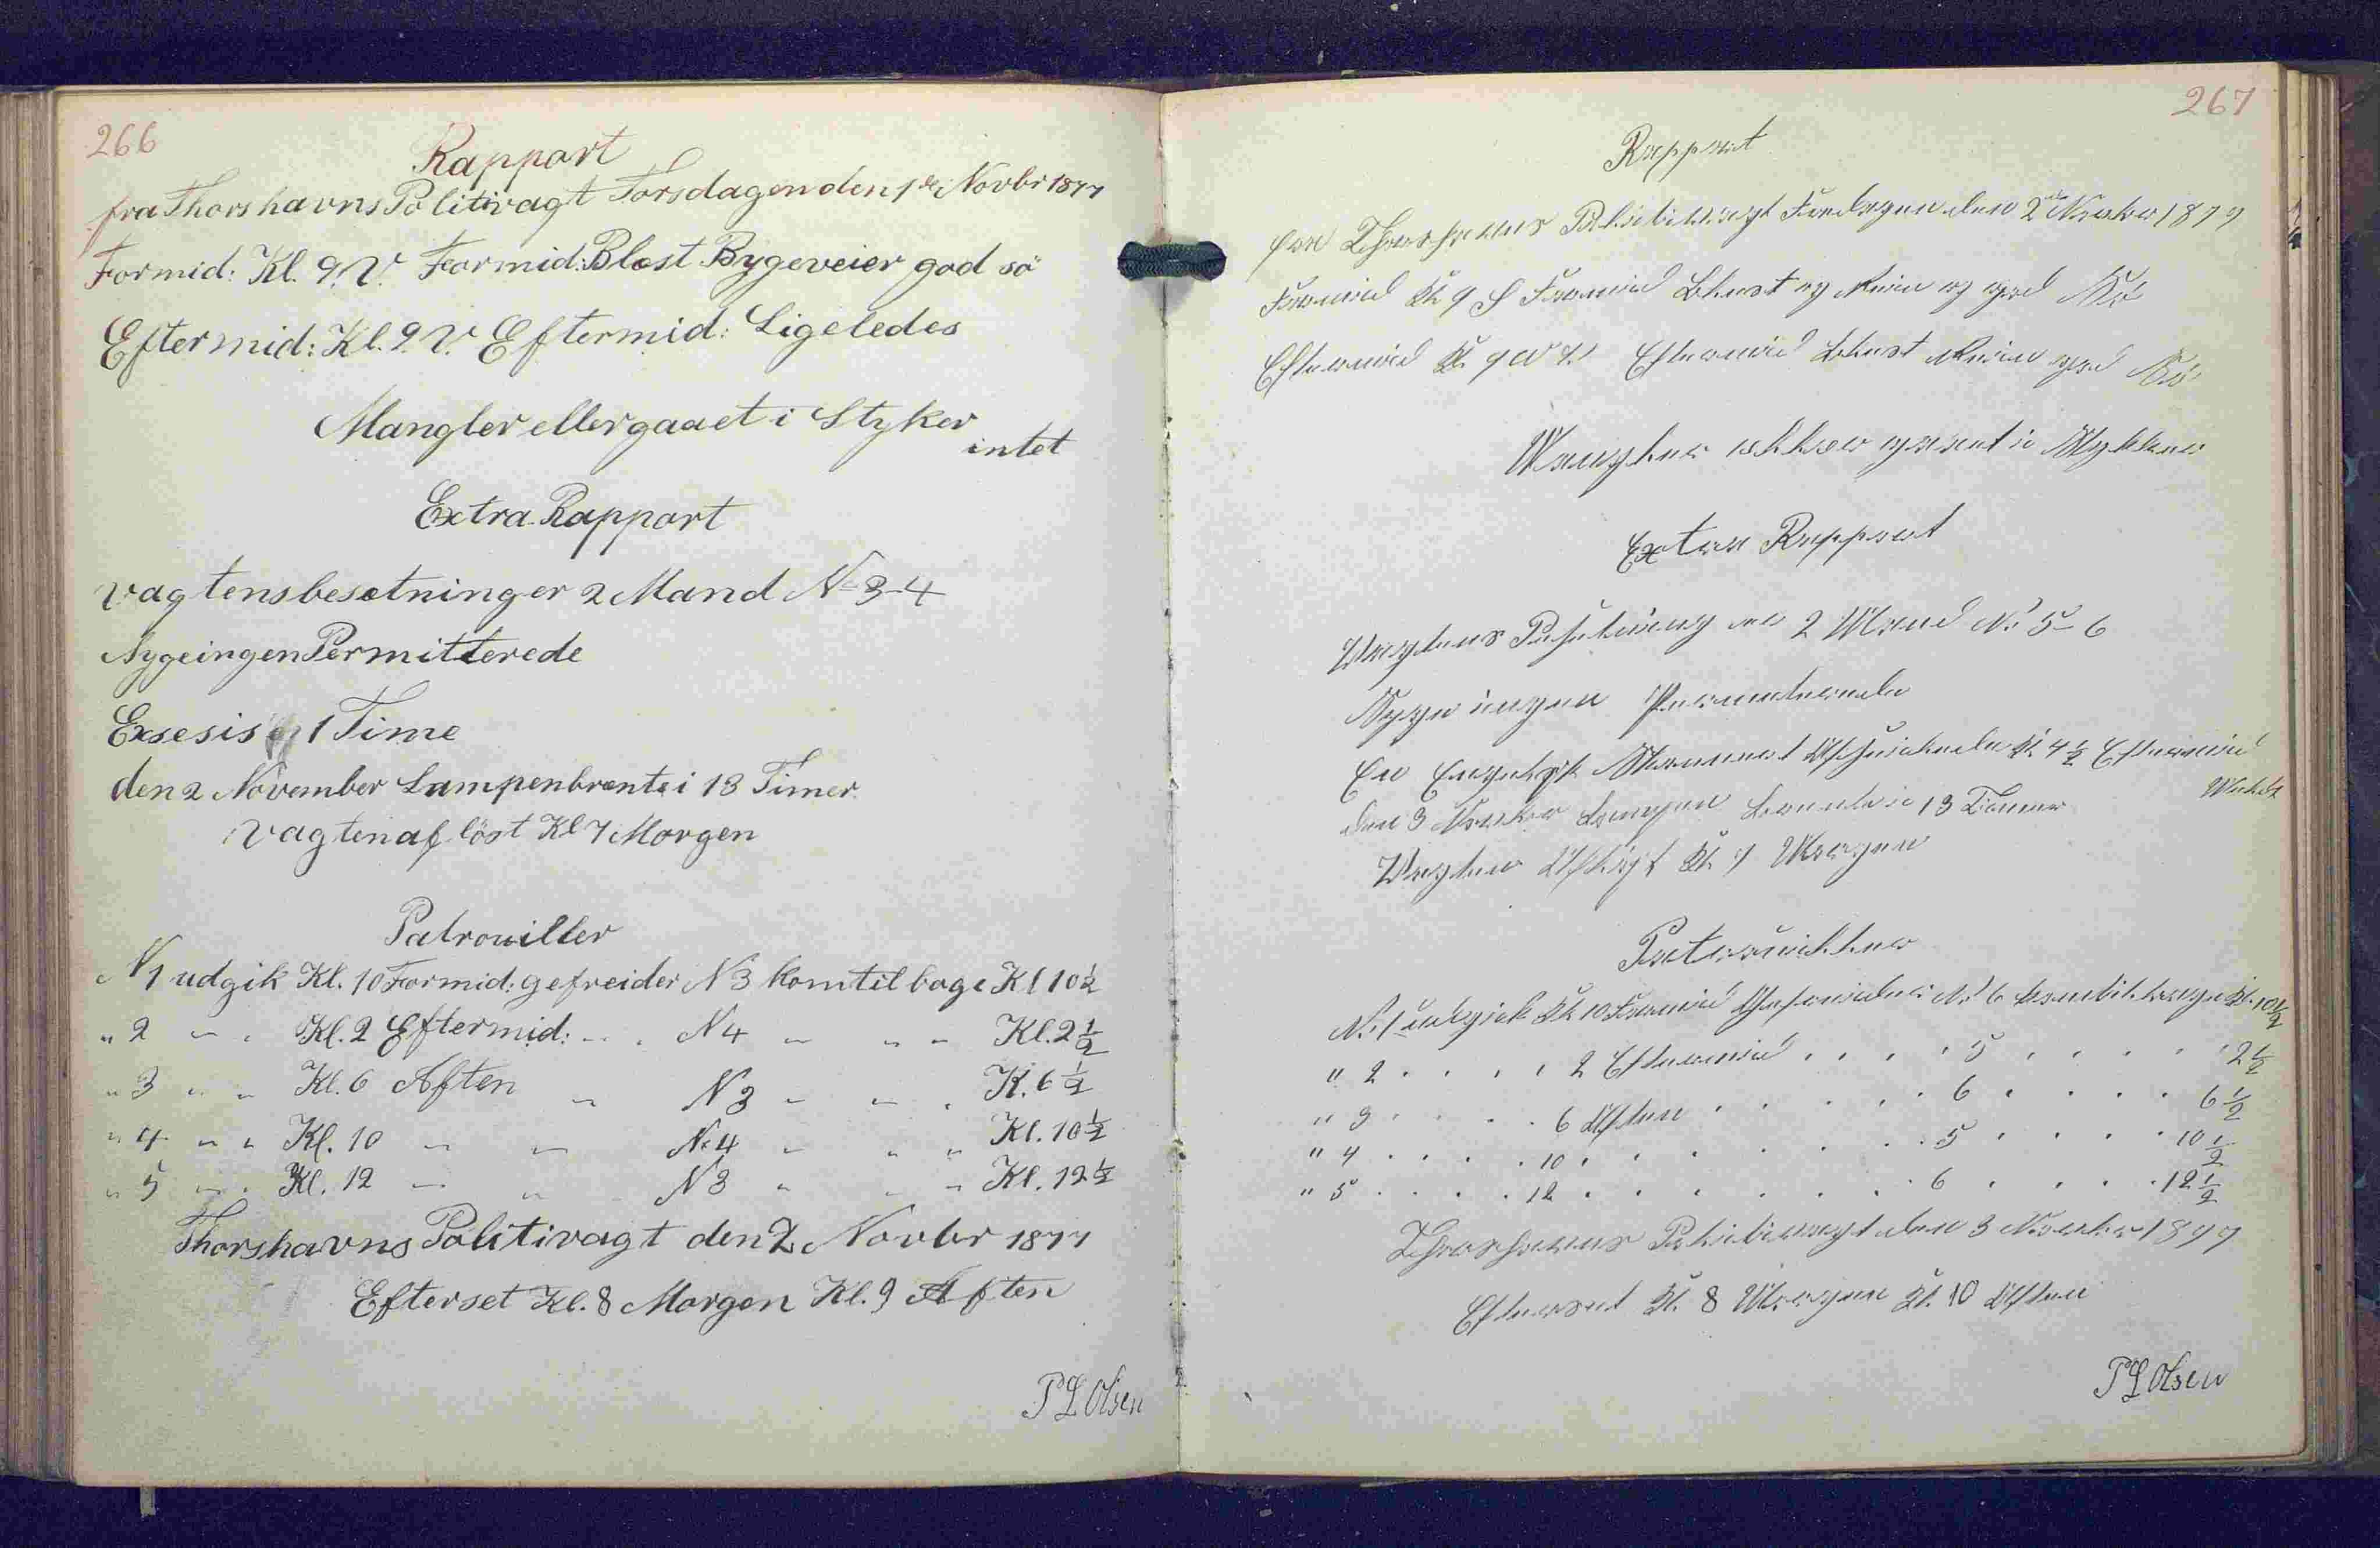 266
Rappart
fra Thorshavns Politivagt Torsdagen den 1ste Novbr 1877
Formid: Kl. 9. V. Formid: Blæst Bygeveier god sö
Eftermid: Kl. 9. V. Eftermid: Ligeledes
Mangler eller gaaet i Styker
intet
Extra Rappart
Vagtens besætning er 2 Mand No 3-4
Syge ingen Permitterede
Exsesis 1 Time
den 2 November Lampen brænte i 13 Timer
Vagten aflöst Kl 7 Morgen
Patrouiller
N 1 udgik Kl. 10 Formid: gefreider N 3 kom tilbage Kl 10 1/2
" 2 " " Kl. 2 Eftermid: " " N 4 " " " Kl. 2 1/2
" 3 " " Kl. 6 Aften " N 3 " " " K. 6 1/2
" 4 " " Kl. 10 " " No 4 " " " Kl. 10 1/2
" 5 " " Kl. 12 " " N 3 " " " Kl. 12 1/2
Thorshavns Politivagt den 2 Novbr 1877
Efterset Kl. 8 Morgen Kl. 9 Aften
P L Olsen
267
Rapport
fra Thorshavns Politivagt Fredagen den 2de Novbr 1877
Formid Kl 9 S Formid Blæst og Rein og god Sö
Eftermid Kl 9 Eftermid Blæst Rein god Sö
Mangler eller gaaet i Stykker
Extra Rapport
Vagtens Besetning er 2 Mand No 5-6
Syge ingen Permeterede
En Engelsk Kl. 4 1/2 Eftermid
den 3 Novbr Lampen brænte i 13 Timer
Vagten Aflöst Kl 7 Morgen
Patrouiller
No 1 udgick Kl 10 Formid Gefreider No 6 kom tilbage Kl. 10 1/2
" 2 . . . . 2 Eftermid . . . . 5 . . . . . 2 1/2
" 3 . . . . 6 Aften . . . . . 6 . . . . 6 1/2
" 4 . . . . 10 . . . . . . 5 . . . . 10 1/2
" 5 . . . . 12 . . . . . . 6 . . . . 12 1/2
Thorshavns Politivagt den 3 Novbr 1877
Efterset Kl. 8 Morgen Kl. 10 Aften
P L Olsen